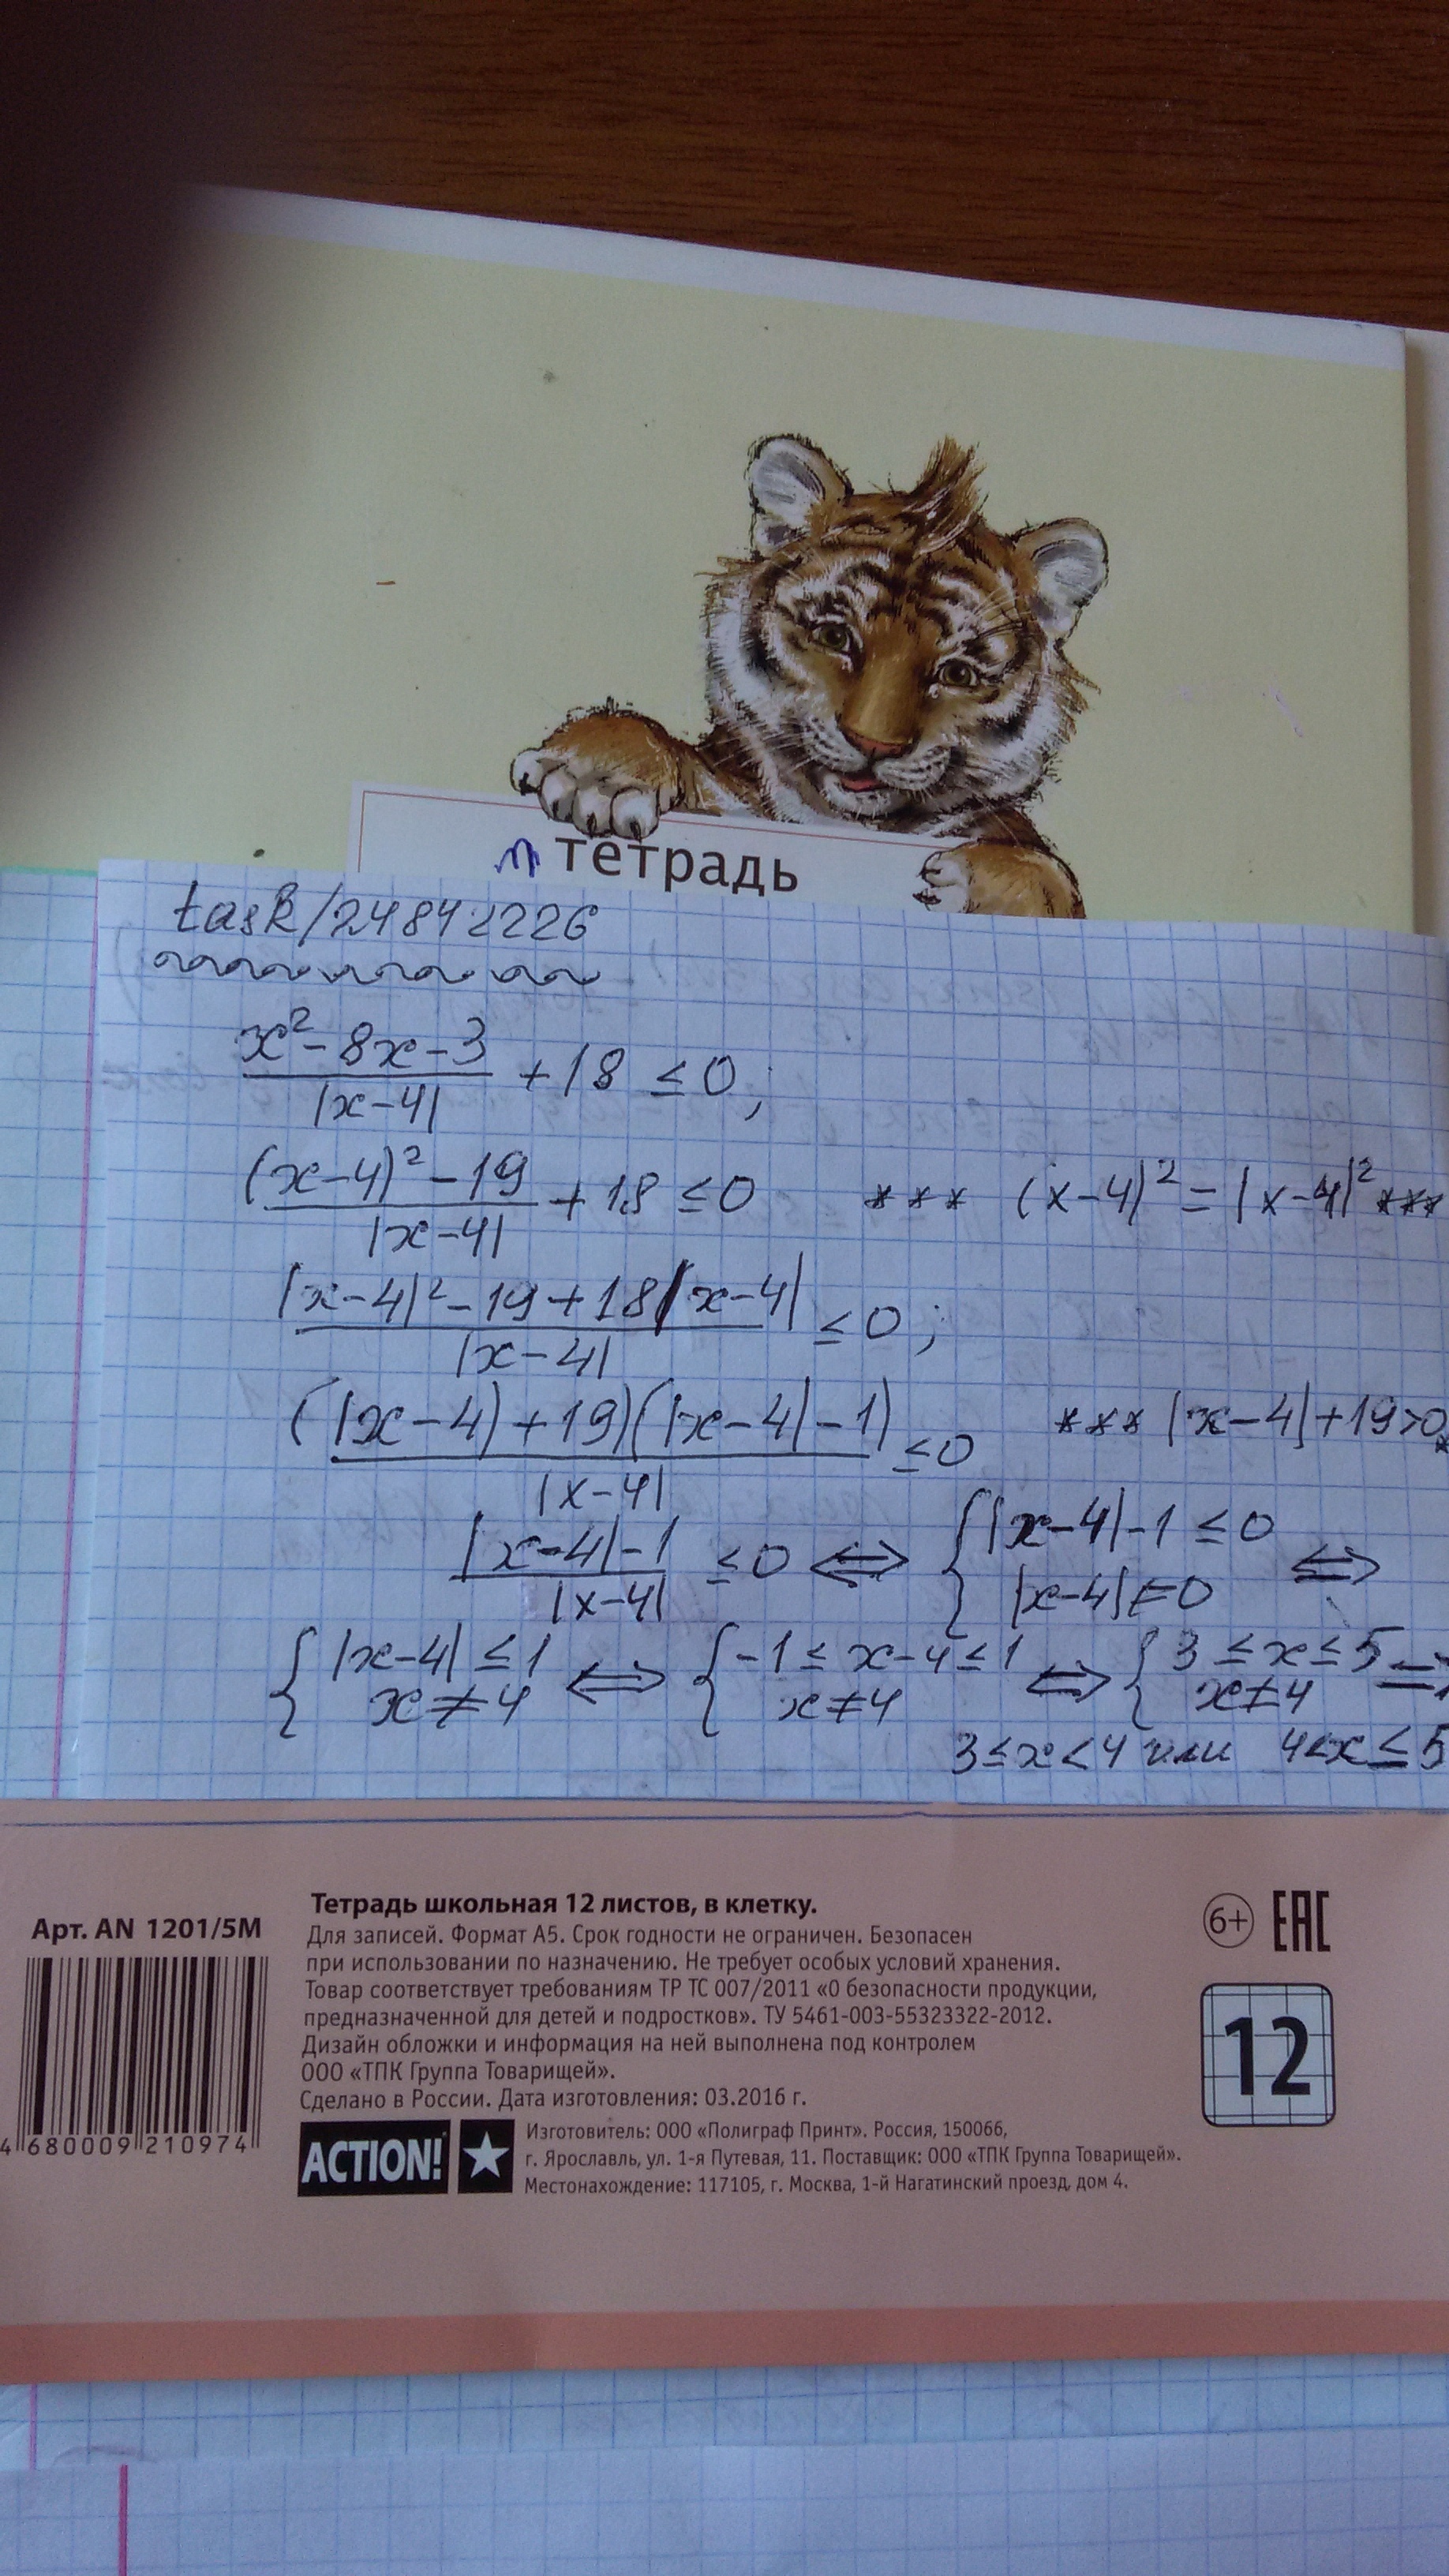 тетрадь
task/24842226
x² - 8x - 3 / |x-4| + 18 ≤ 0;
(x-4)² - 19 / |x-4| + 18 ≤ 0 *** (x-4)² = |x-4|² ***
|x-4|² - 19 + 18|x-4| / |x-4| ≤ 0;
(|x-4| + 19)(|x-4| - 1) / |x-4| ≤ 0 *** |x-4| + 19 > 0
|x-4| - 1 / |x-4| ≤ 0 ⟺ { |x-4| - 1 ≤ 0 |x-4| ≠ 0 ⟺
{ |x-4| ≤ 1 x ≠ 4 ⟺ { -1 ≤ x-4 ≤ 1 x ≠ 4 ⟺ { 3 ≤ x ≤ 5 x ≠ 4
3 ≤ x < 4 или 4 < x ≤ 5
Арт. AN 1201/5М
4 680009 210974
Тетрадь школьная 12 листов, в клетку.
Для записей. Формат А5. Срок годности не ограничен. Безопасен
при использовании по назначению. Не требует особых условий хранения.
Товар соответствует требованиям ТР ТС 007/2011 «О безопасности продукции,
предназначенной для детей и подростков». ТУ 5461-003-55323322-2012.
Дизайн обложки и информация на ней выполнена под контролем
ООО «ТПК Группа Товарищей».
Сделано в России. Дата изготовления: 03.2016 г.
ACTION!
Изготовитель: ООО «Полиграф Принт». Россия, 150066,
г. Ярославль, ул. 1-я Путевая, 11. Поставщик: ООО «ТПК Группа Товарищей».
Местонахождение: 117105, г. Москва, 1-й Нагатинский проезд, дом 4.
6+ EAC
12